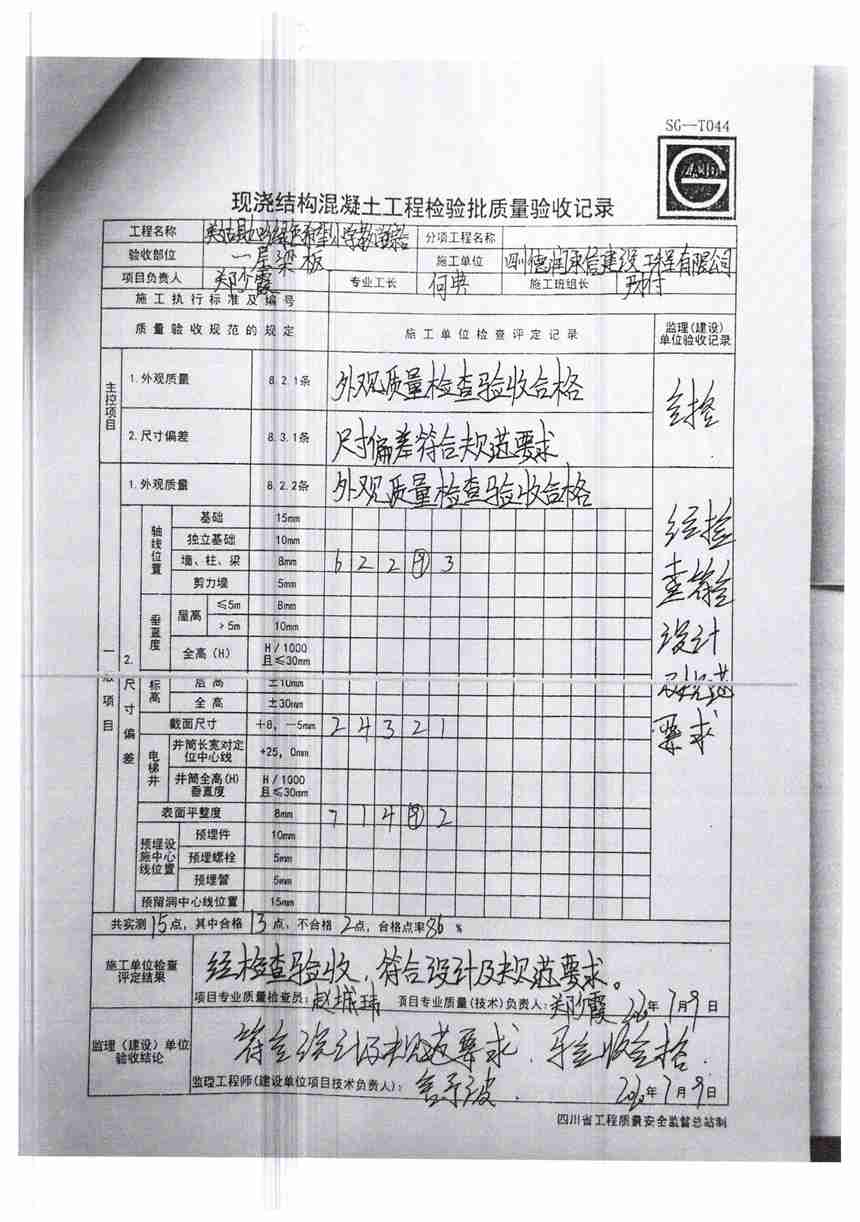 SG—T044
现浇结构混凝土工程检验批质量验收记录
工程名称 分项工程名称
验收部位 一层梁板 施工单位 四川德润承信建设工程有限公司
项目负责人 郑霞 专业工长 何典 施工班组长
施工执行标准及编号
质量验收规范的规定 施工单位检查评定记录 监理(建设)单位验收记录
主控项目 1.外观质量 8.2.1条 外观质量检查验收合格
2.尺寸偏差 8.3.1条 尺寸偏差符合规范要求
一般项目 1.外观质量 8.2.2条 外观质量检查验收合格
经检查符合设计及规范要求
2.尺寸偏差 轴线位置 基础 15mm
独立基础 10mm
墙、柱、梁 8mm 6 2 2 9 3
剪力墙 5mm
垂直度 层高 ≤5m 8mm
>5m 10mm
全高(H) H/1000且≤30mm
标高 层高 ±10mm
全高 ±30mm
截面尺寸 +8,—5mm 2 4 3 2 1
电梯井 井筒长宽对定位中心线 +25,0mm
井筒全高(H)垂直度 H/1000且≤30mm
表面平整度 8mm 7 1 4 9 2
预埋设施中心线位置 预埋件 10mm
预埋螺栓 5mm
预埋管 5mm
预留洞中心线位置 15mm
共实测15点,其中合格13点、不合格2点,合格点率86%
施工单位检查评定结果 经检查验收,符合设计及规范要求。
项目专业质量检查员: 赵城玮 项目专业质量(技术)负责人: 郑霞 年7月9日
监理(建设)单位验收结论 符合设计及规范要求,验收合格.
监理工程师(建设单位项目技术负责人): 2020年7月9日
四川省工程质量安全监督总站制